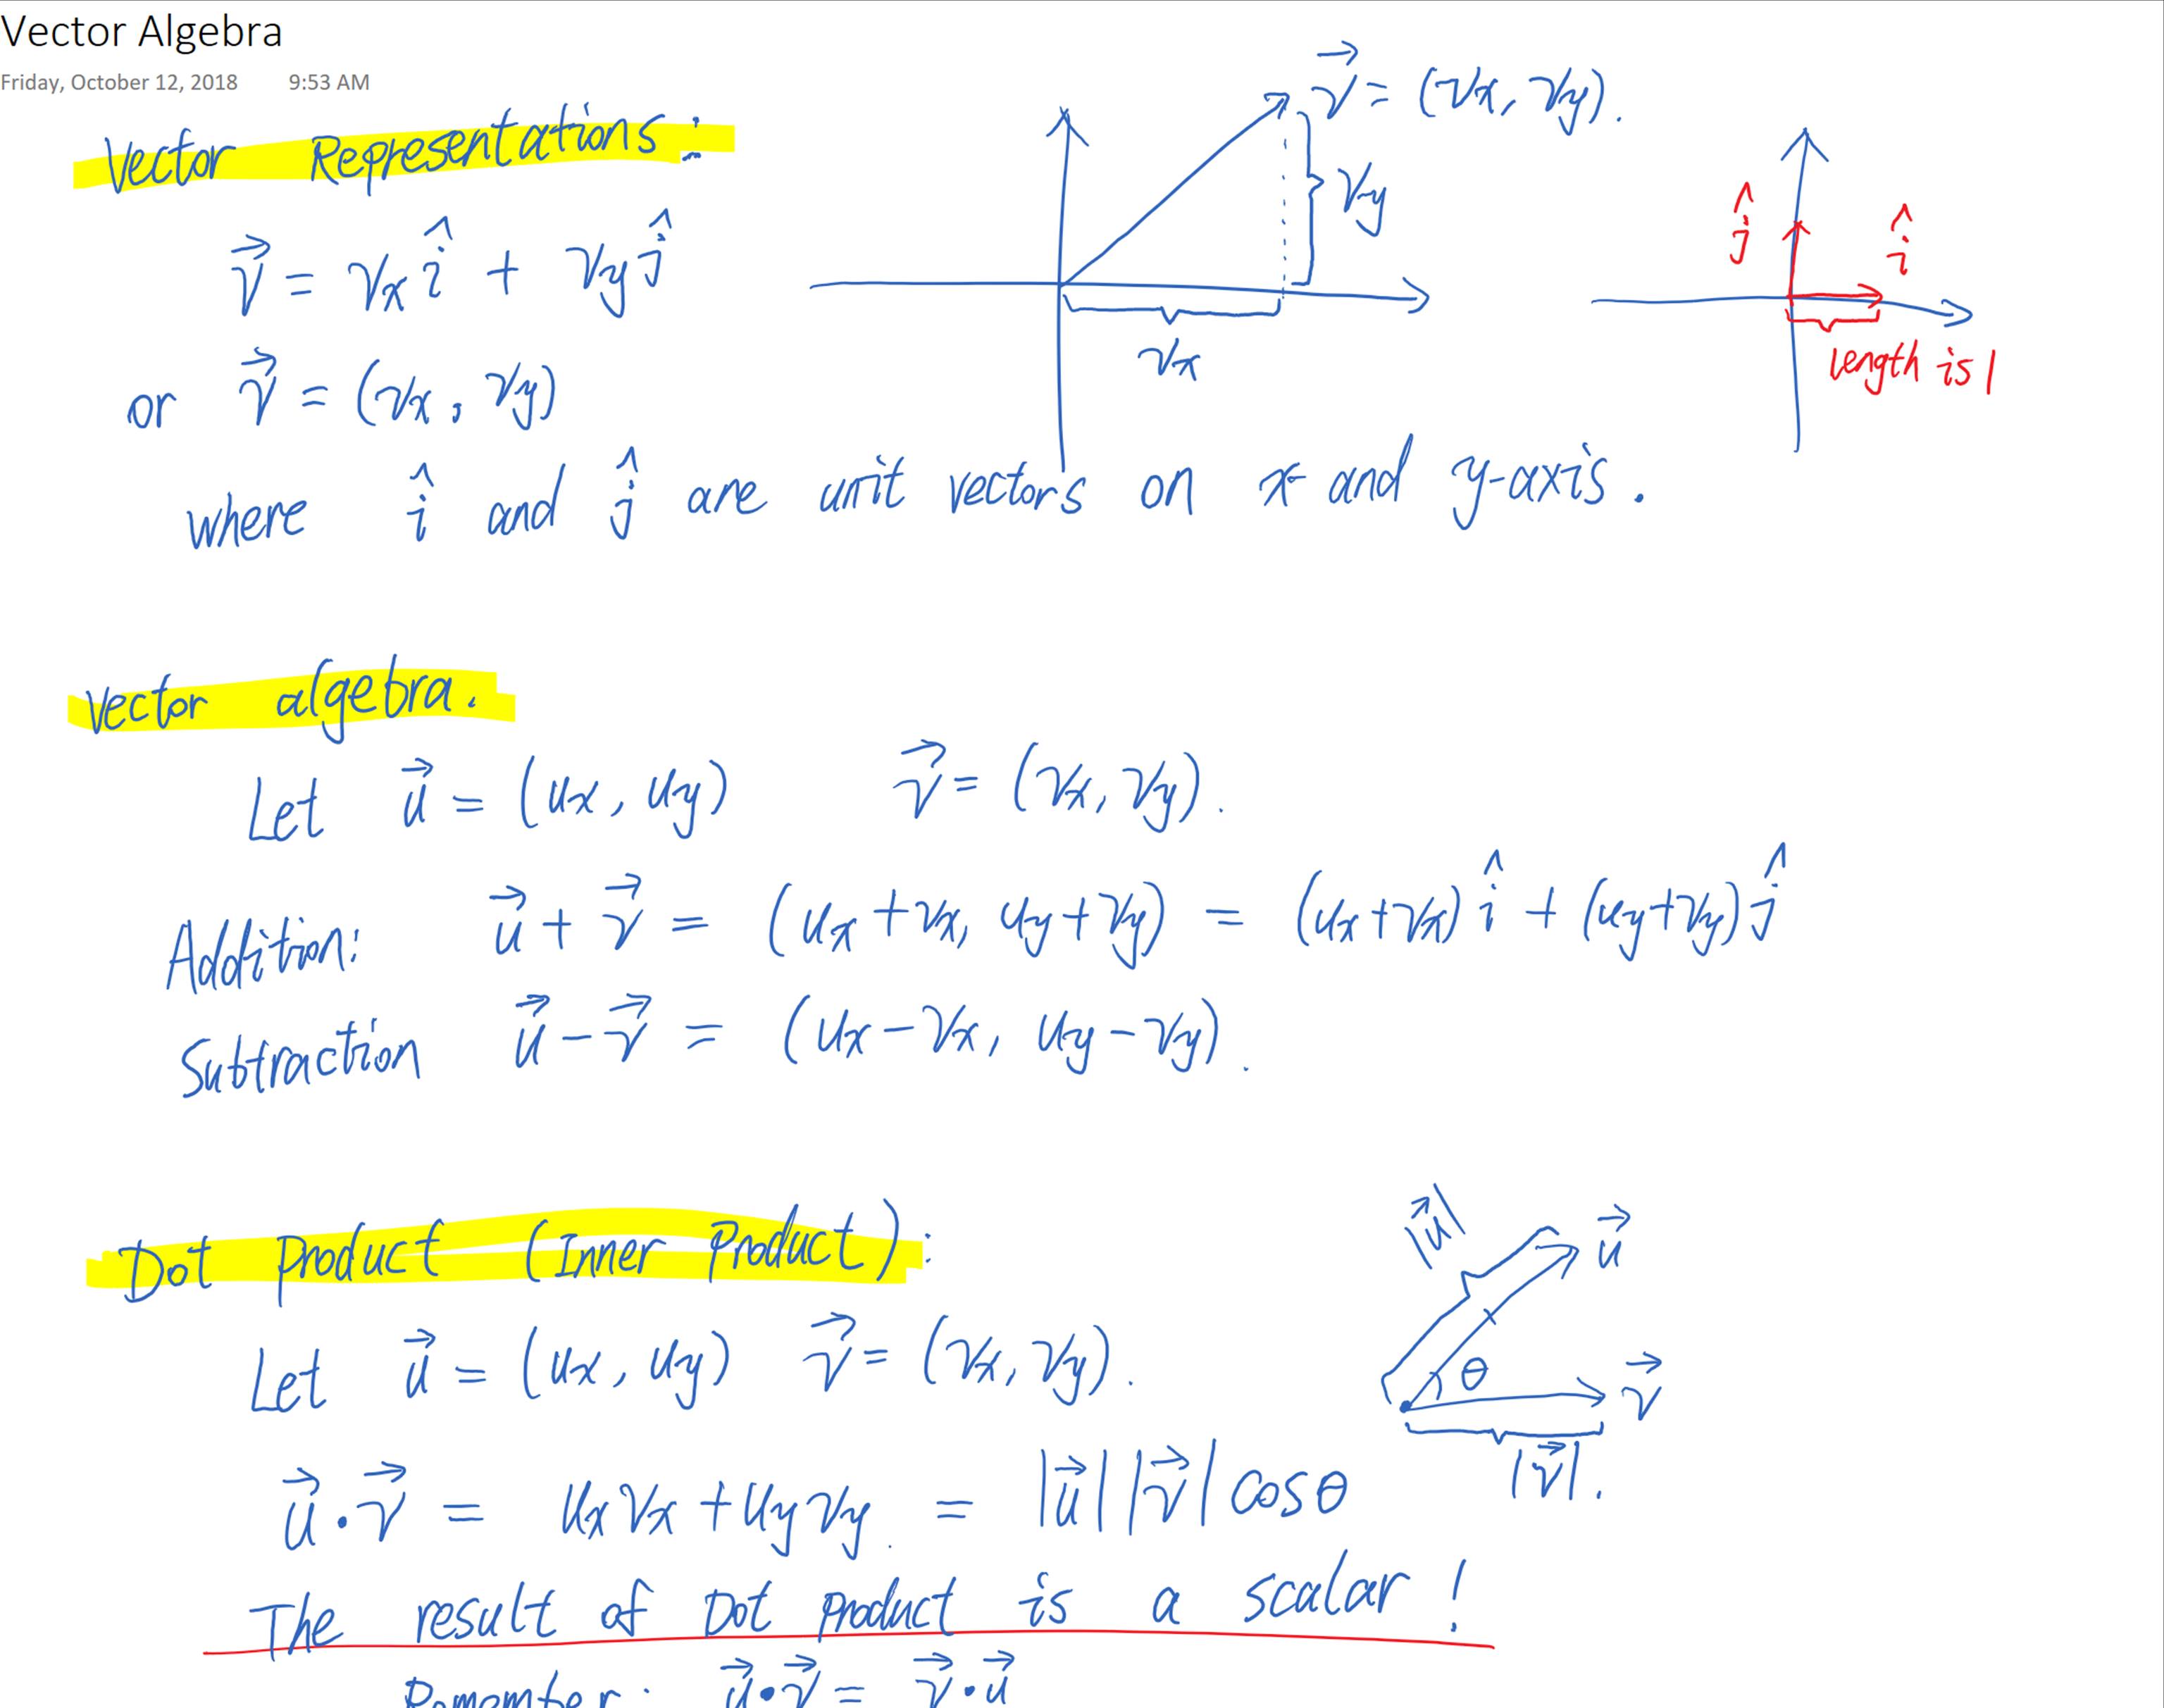 Vector Algebra
Friday, October 12, 2018 9:53 AM
Vector Representations:
$\vec{v} = v_x \hat{i} + v_y \hat{j}$
or $\vec{v} = (v_x, v_y)$
where $\hat{i}$ and $\hat{j}$ are unit vectors on x- and y-axis.
$\vec{v} = (v_x, v_y).$
$v_y$
$v_x$
$\hat{j}$
$\hat{i}$
length is 1
Vector algebra.
Let $\vec{u} = (u_x, u_y)$ $\vec{v} = (v_x, v_y).$
Addition: $\vec{u} + \vec{v} = (u_x + v_x, u_y + v_y) = (u_x + v_x) \hat{i} + (u_y + v_y) \hat{j}$
Subtraction $\vec{u} - \vec{v} = (u_x - v_x, u_y - v_y).$
Dot Product (Inner Product):
Let $\vec{u} = (u_x, u_y)$ $\vec{v} = (v_x, v_y).$
$\vec{u} \cdot \vec{v} = u_x v_x + u_y v_y. = |\vec{u}| |\vec{v}| \cos\theta$
$|\vec{u}|$
$\vec{u}$
$\theta$
$\vec{v}$
$|\vec{v}|.$
The result of Dot Product is a scalar!
Remember: $\vec{u} \cdot \vec{v} = \vec{v} \cdot \vec{u}$